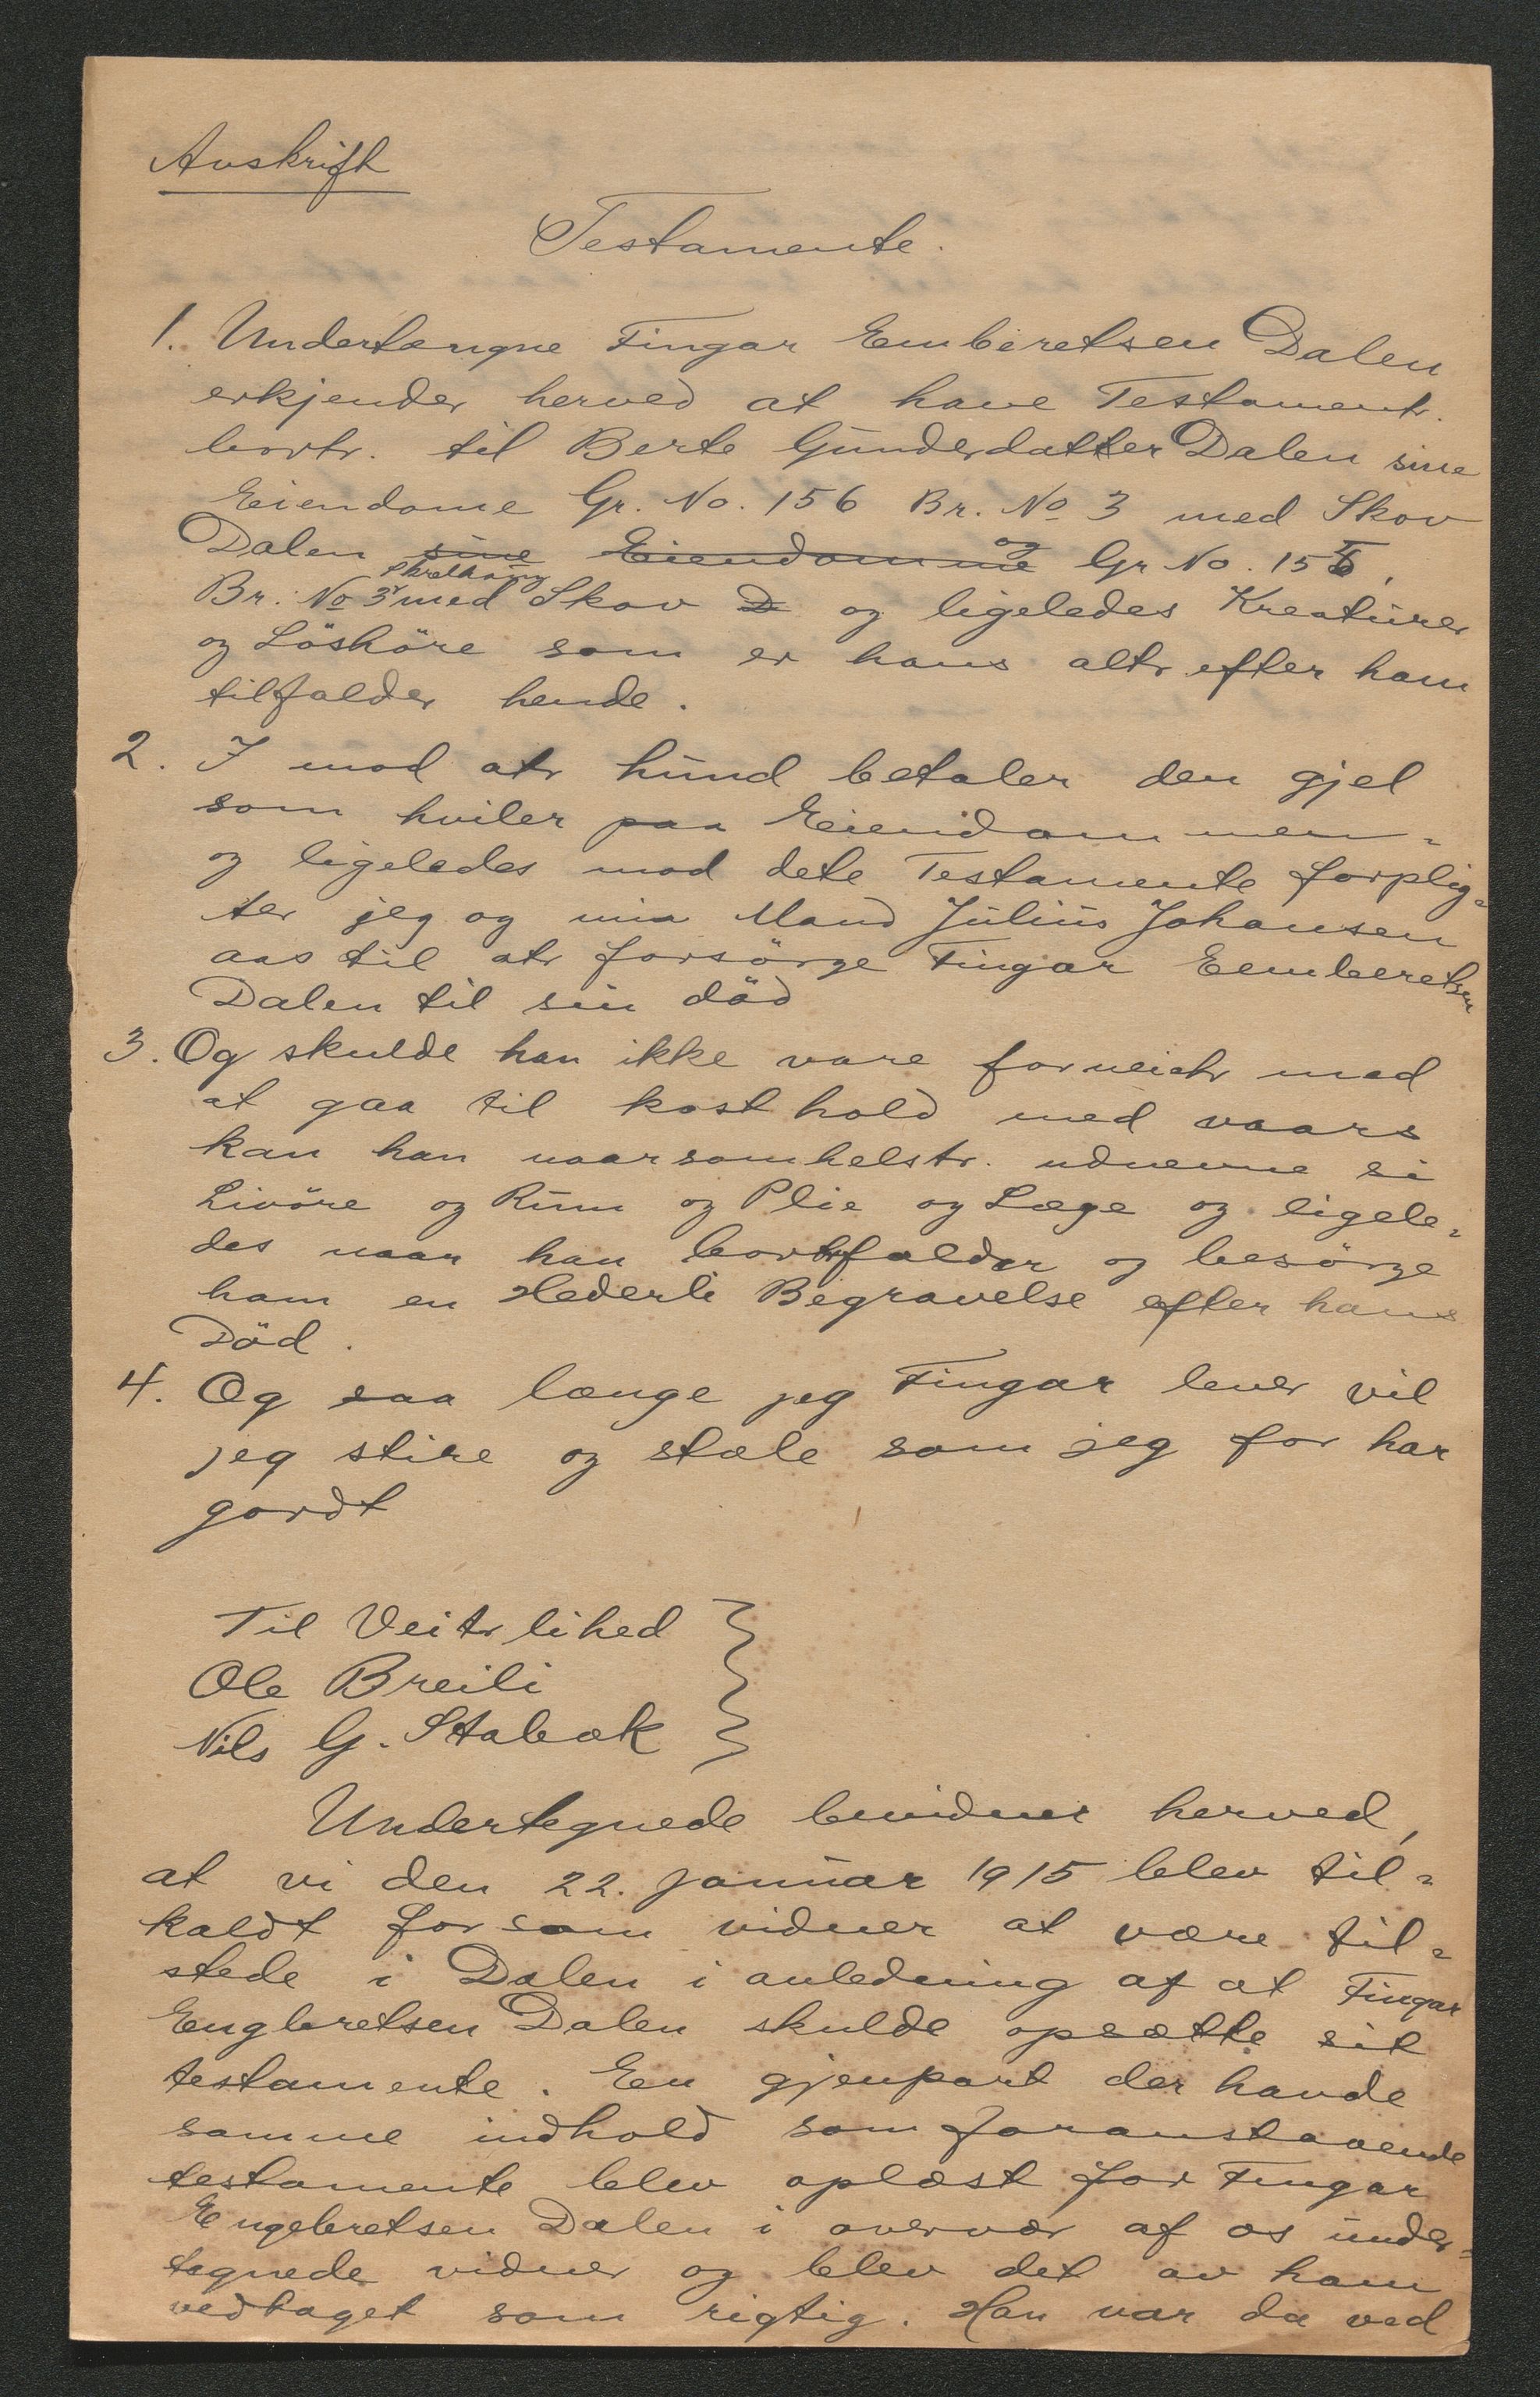 Avskrift
Testamente.
1. Undertængne Fingar Emberetsen Dalen
erkjender herved at have Testament.
bortr. til Berte Gunderdatter Dalen sine
Eiendome Gr. No. 156 Br. No 3 med Skov
Dalen sine Eiendomme og Gr No. 155,
Br. No 3 med Skov D og ligeledes Kreaturer
og Löshöre som er hans altr efter ham
tilfalder hende.
2. I mod atr hund betaler den gjel
som hviler paa Eiendommen-
og ligeledes mod dete Testamente forplig-
ter jeg og min Mand Julius Johansen
aas til atr forsörge Fingar Eemberetsen
Dalen til sin död
3. Og skulde han ikke vare forneietr med
at gaa til kosthold med vaars
kan han naarsomhelstr. udnevne si
Livöre og Rum og Plie og Læge og ligele-
des naar han bortrfalder og besörge
ham en Hederli Begravelse efter hans
Död.
4. Og saa længe jeg Fingar lever vil
jeg stire og stæle som jeg for har
gordt
Til Veitrlihed
Ole Breili
Nils G. Stabæk
Undertegnede bevidner herved,
at vi den 22. januar 1915 blev til-
kaldt for som vidner at være til-
stede i Dalen i anledning af at Fingar
Engbretsen Dalen skulde opsætte sit
testamente. En gjenpart der havde
samme indhold som foranstaaende
testamente blev oplæst for Fingar
Engebretsen Dalen i overvær af os under-
tegnede vidner og blev det av ham
vedtaget som rigtig. Han var da ved